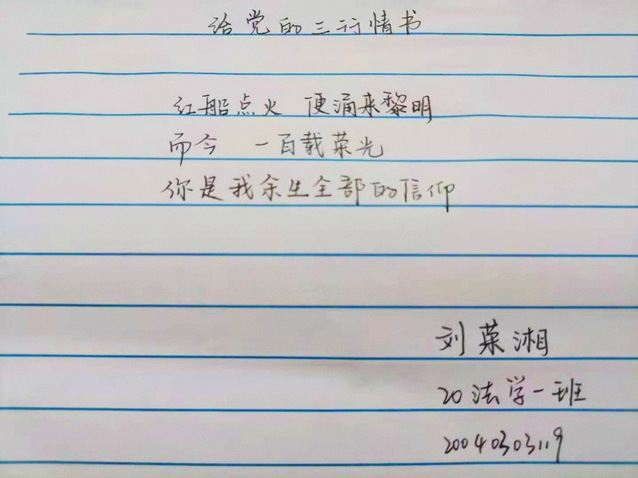 给党的三行情书
红船点火 便涌来黎明
而今 一百载荣光
你是我余生全部的信仰
刘荣湘
20法学一班
20040303119